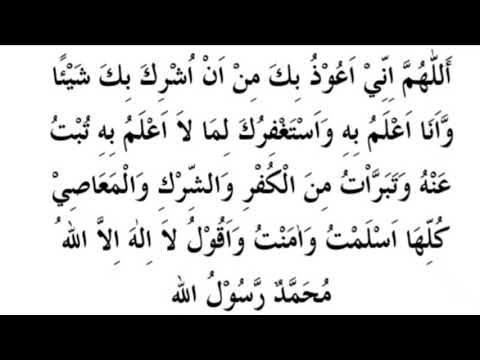 أَللّٰهُمَّ اِنِّيْ اَعُوْذُ بِكَ مِنْ اَنْ اُشْرِكَ بِكَ شَيْئًا
وَّاَنَا اَعْلَمُ بِهٖ وَاَسْتَغْفِرُكَ لِمَا لاَ اَعْلَمُ بِهٖ تُبْتُ
عَنْهُ وَتَبَرَّاْتُ مِنَ الْكُفْرِ وَالشِّرْكِ وَالْمَعَاصِيْ
كُلِّهَا اَسْلَمْتُ وَاٰمَنْتُ وَاَقُوْلُ لاَ اِلٰهَ اِلاَّ اللهُ
مُحَمَّدٌ رَّسُوْلُ الله